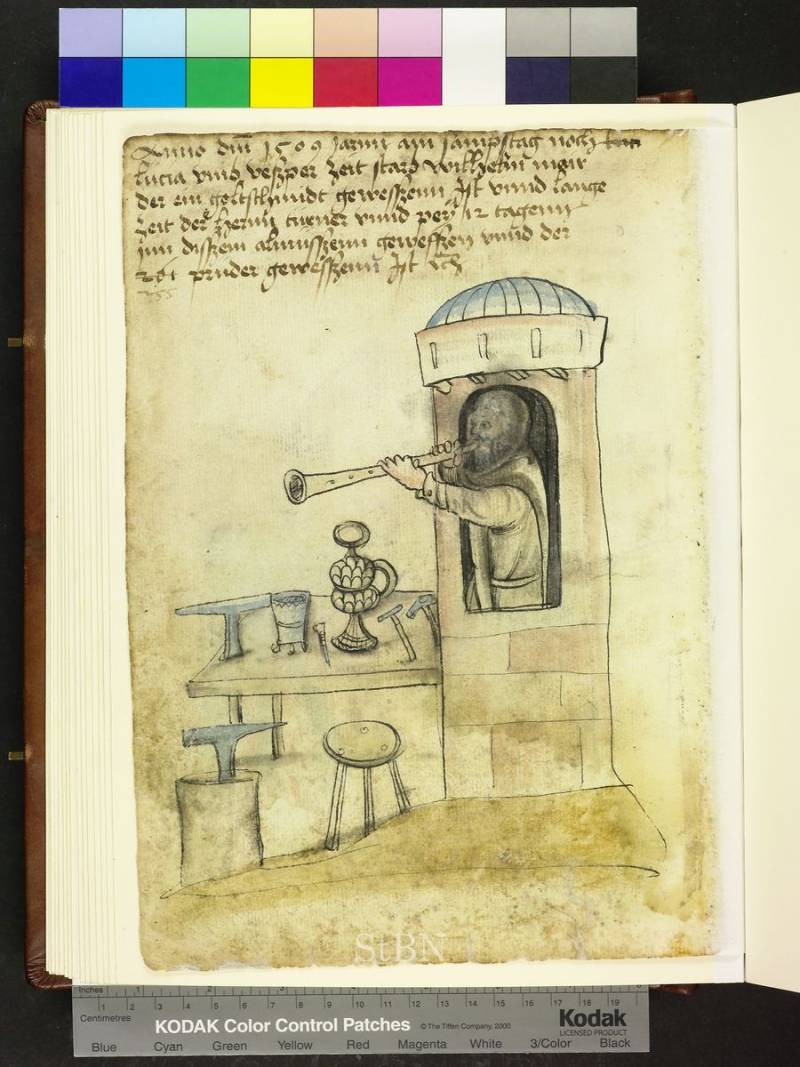 Anno dm 1509 Jarnn am sampstag noch
lucia vmb veszper zeit starb Wilhelm
der ein goltschmidt gewesszenn Ist vnnd lange
zeit der hernn türner vnnd pey 12 tagenn
Inn diszem almusszenn gewesszen vnnd der
201 pruder gewesszenn Ist
255
StBN
Inches
Centimetres
1 2 3 4 5 6 7 8 9 10 11 12 13 14 15 16 17 18 19
KODAK Color Control Patches © The Tiffen Company, 2000 Kodak
LICENSED PRODUCT
Blue Cyan Green Yellow Red Magenta White 3/Color Black